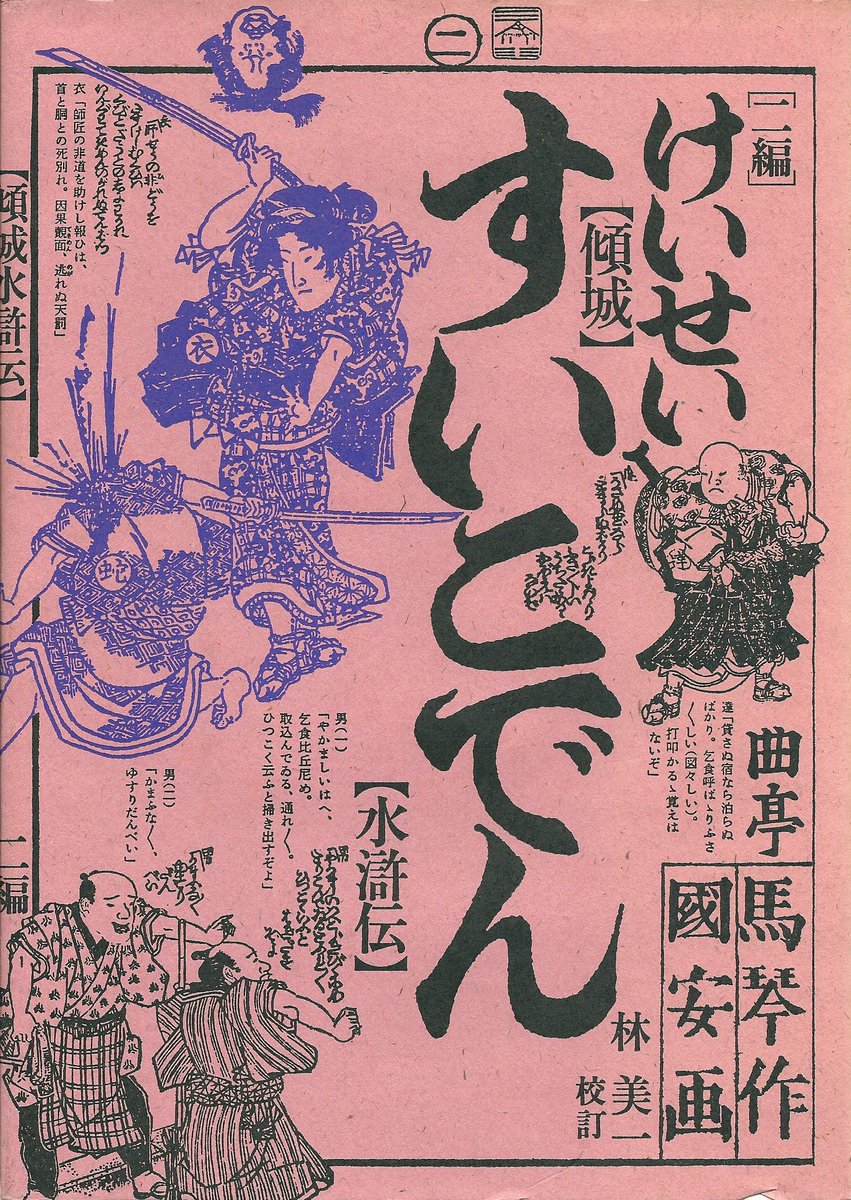 二
[二編]
けいせい
【傾城】
すいこでん
【水滸伝】
曲亭
馬琴作
國安画
林美一
校訂
達「貸さぬ宿なら泊らぬ
ばかり。乞食呼ばゝりふさ
〱しい(図々しい)。
打叩かるゝ覚えは
ないぞ」
衣「師匠の非道を助けし報ひは、
首と胴との死別れ。因果覿面、逃れぬ天罰」
衣
蛇
男(一)
「やかましいはへ、
乞食比丘尼め。
取込んでゐる、通れ〱。
ひつこく云ふと掃き出すぞよ」
男(二)
「かまふな〱、
ゆすりだんべい」
【傾城水滸伝】
二編